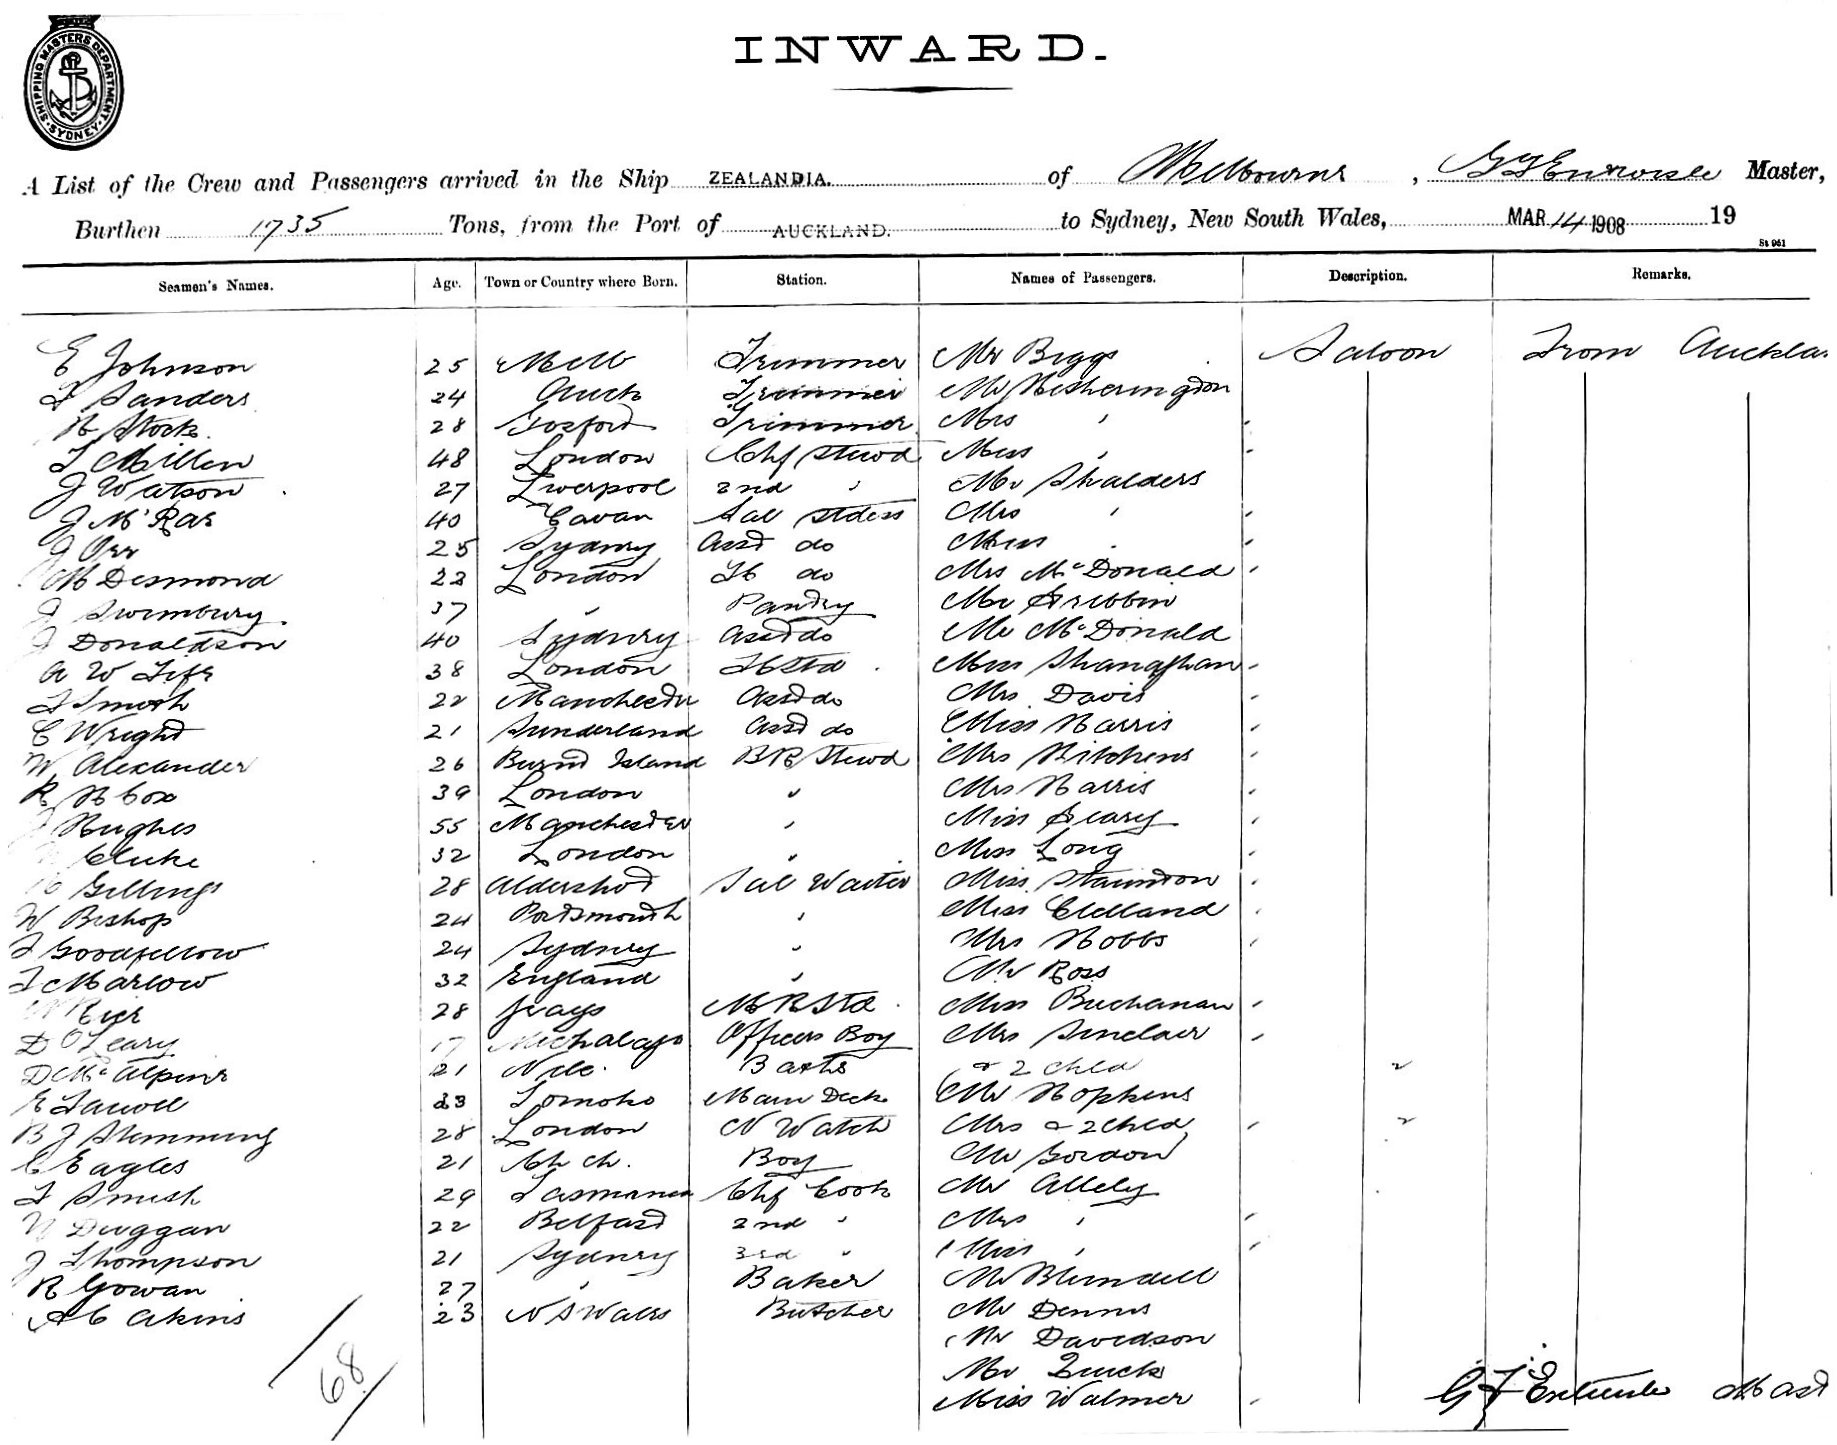 INWARD.
SHIPPING MASTERS DEPARTMENT SYDNEY
A List of the Crew and Passengers arrived in the Ship ZEALANDIA. of Melbourne, Master,
Burthen 1735 Tons, from the Port of AUCKLAND. to Sydney, New South Wales, MAR 14 1908 19
St 961
Seamen's Names. Age. Town or Country where Born. Station. Names of Passengers. Description. Remarks.
E Johnson 25 Melb Trimmer Mr Biggs Saloon From Aucklan
F Sanders 24 Auck Trimmer Mr Hetherington
H Stock 28 Gosford Trimmer Mrs "
48 London Chf Stewd Miss "
J Watson 27 Liverpool 2nd " Mr Shalders
J McRae 40 Cavan Sal Stdess Mrs "
J Orr 25 Sydney Asst do Miss "
M Desmond 22 London do Mrs McDonald
J Swinbury 37 " Pantry Mr Gribbin
J Donaldson 40 Sydney Asst do Mr McDonald
A W Fife 38 London Std Miss Shanaghan
22 Manchester Asst do Mrs Davis
C Wright 21 Sunderland Asst do Miss Harris
W Alexander 26 Burnt Island BR Stewd Mrs Hitchens
R H Cox 39 London " Mrs Harris
Hughes 55 Manchester " Miss Geary
32 London " Miss Long
Gillings 28 Aldershot Sal Waiter Miss Staunton
W Bishop 24 Portsmouth " Miss Clelland
F Goodfellow 24 Sydney " Mrs Hobbs
F Marlow 32 England " Mr Ross
28 Grays M R Std Miss Buchanan
D O'Leary 17 Michalago Officers Boy Mrs Sinclair
D McAlpine 21 Baths & 2 chld 2
23 Main Deck Mr Hopkins
B J Slemming 28 London N Watch Mrs & 2 chld 2
C Eagles 21 Ch ch. Boy Mr Gordon
29 Tasmania Chf Cook Mr Allely
Duggan 22 Belfast 2nd " Mrs "
J Thompson 21 Sydney 3rd " Miss "
R Gowan 27 " Baker Mr Blundell
A C Akins 23 N S Wales Butcher Mr Dennis
Mr Davidson
68 Mr Quick
Miss Walmer G F Mast